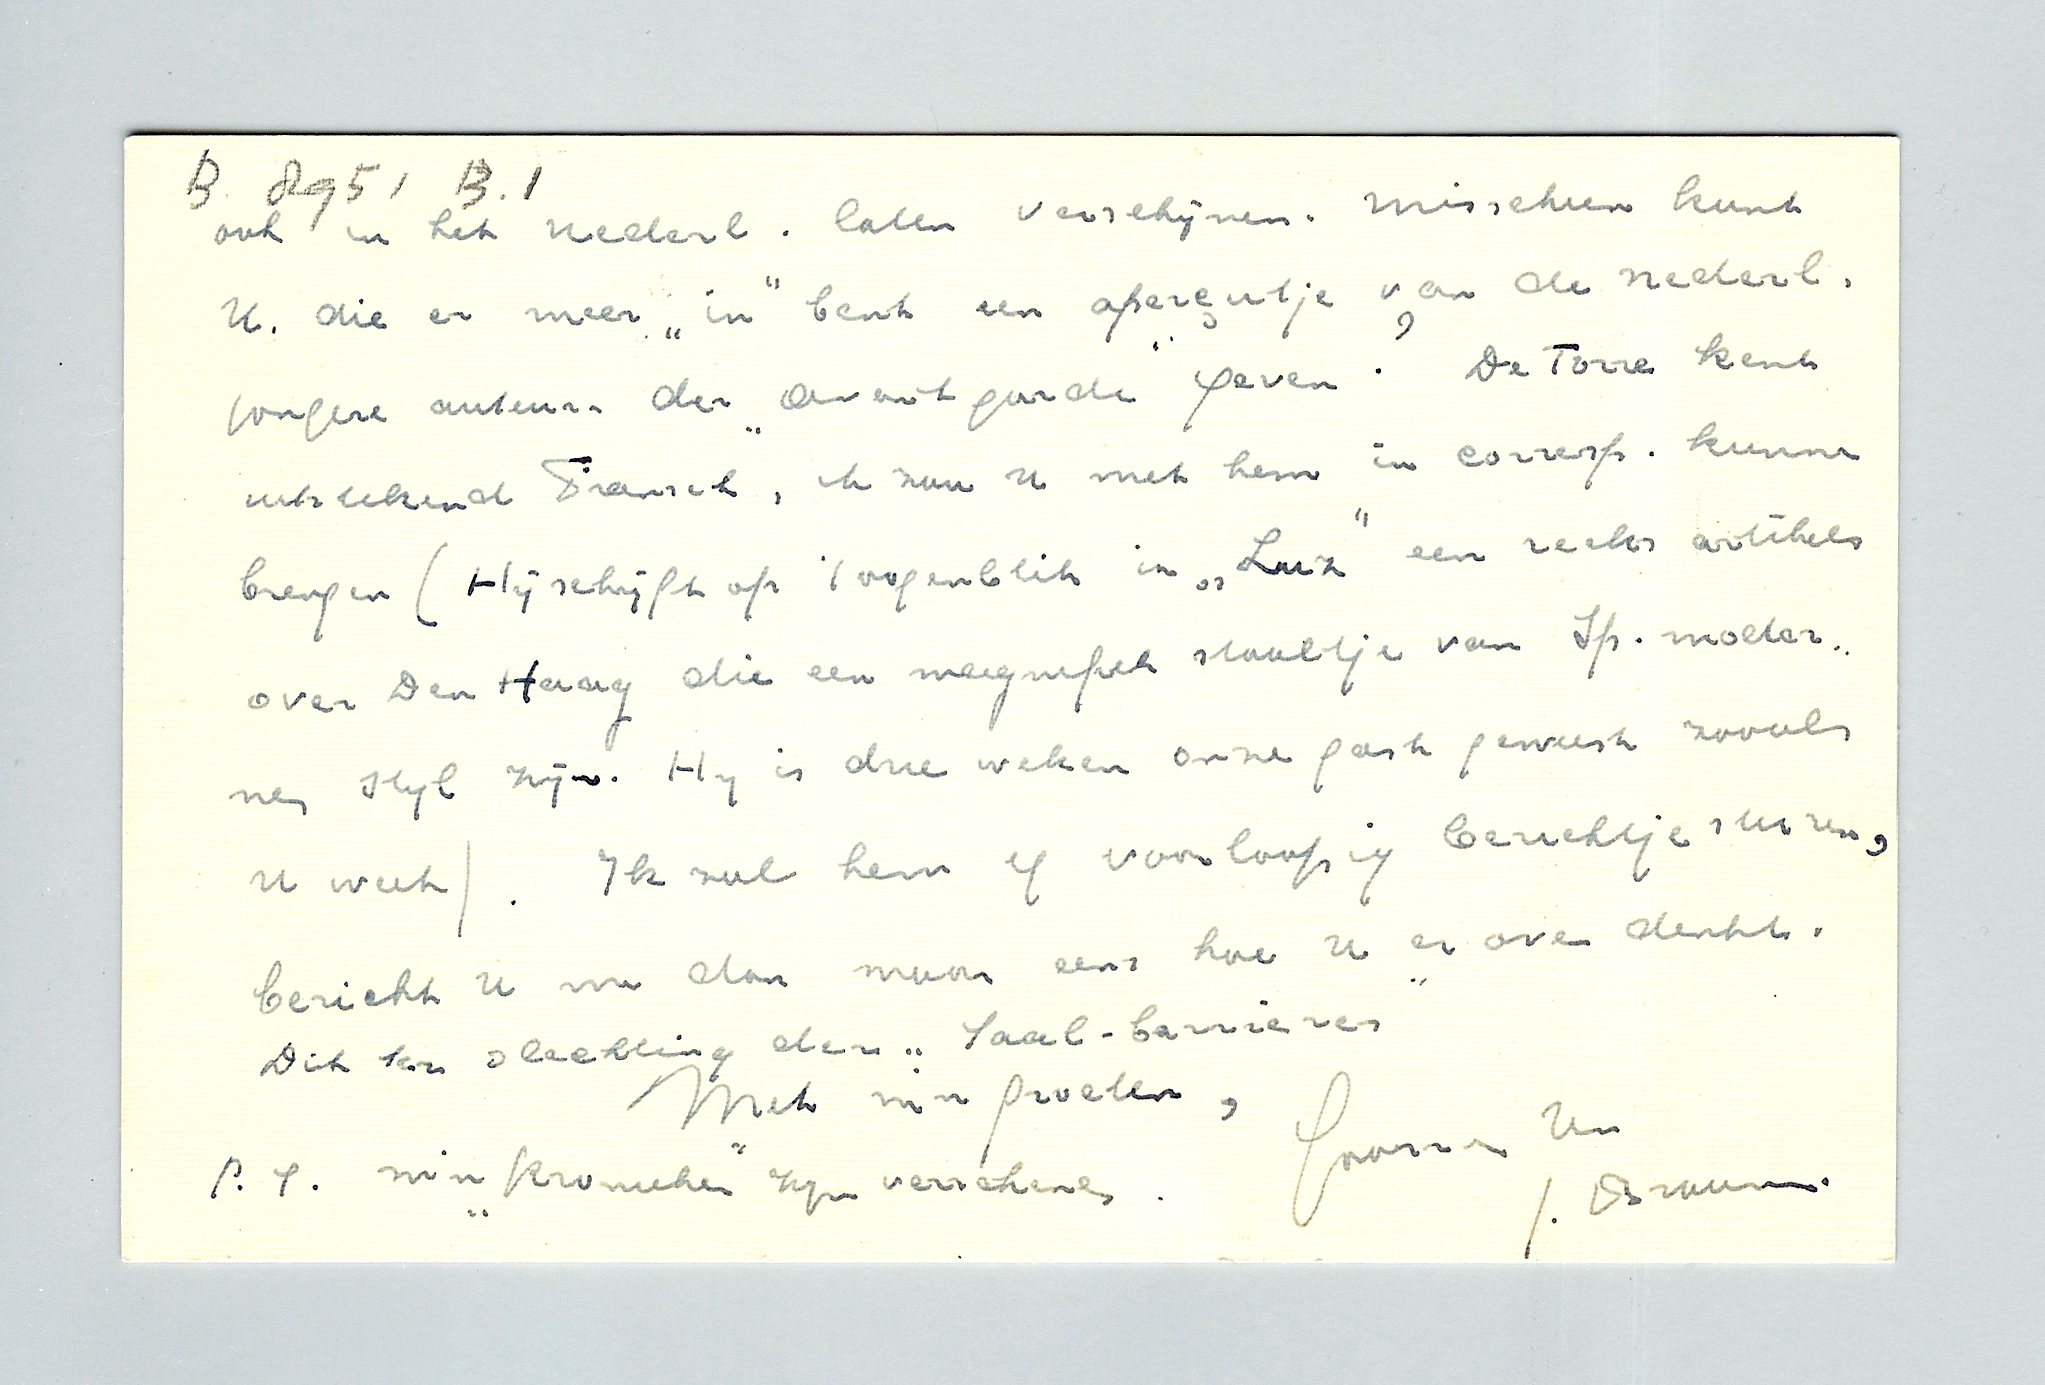 B. 8951 B.1
ook in het nederl. laten verschijnen. Misschien kunt
U. die er meer „in" bent een aperçutje van de nederl.
jongere auteurs der „avant garde" geven? De Torre kent
uitstekend Fransch, ik zou U met hem in corresp. kunnen
brengen (Hij schrijft op 't oogenblik in „Luz" een reeks artikels
over Den Haag die een magnifiek staaltje van Sp. moder-
nen stijl zijn. Hij is drie weken onze gast geweest zooals
U weet). Ik zal hem vast voorloopig berichtje sturen,
bericht U me dan maar eens hoe U er over denkt.
Dit ter slechting der „Taal-barrières"
Met mijn groeten,
Uw
J. Brouwer.
P.S. mijn „Kronieken" zijn verschenen.